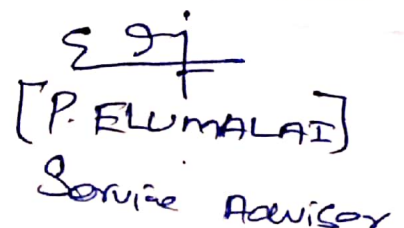 [P. ELUMALAI]
Service Advisor